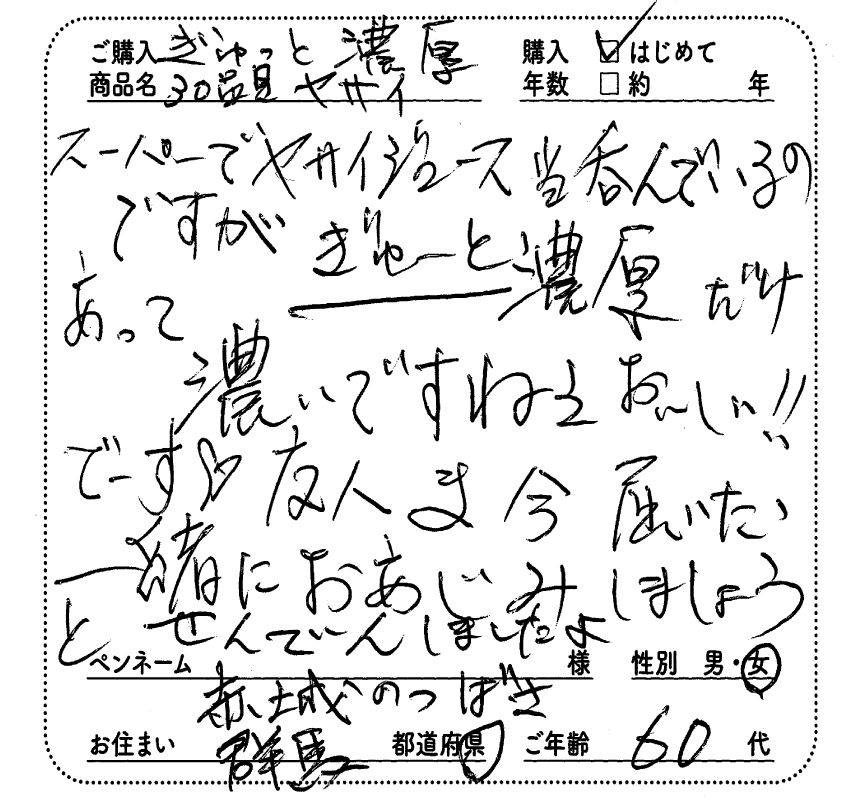 ご購入 商品名 ぎゅっと濃厚 30品目ヤサイ
購入 年数 ☑はじめて □約 年
スーパーでヤサイジュース当呑んでいるの
ですがぎゅーと濃厚だけ
あって
濃いですねえおいしい!!
でーす♡友人ま今届いたい
一緒におあじみしましょう
とせんでいんしましたよ
ペンネーム 赤城のつばさ 様 性別 男・女
お住まい 群馬 都道府県 ご年齢 60代